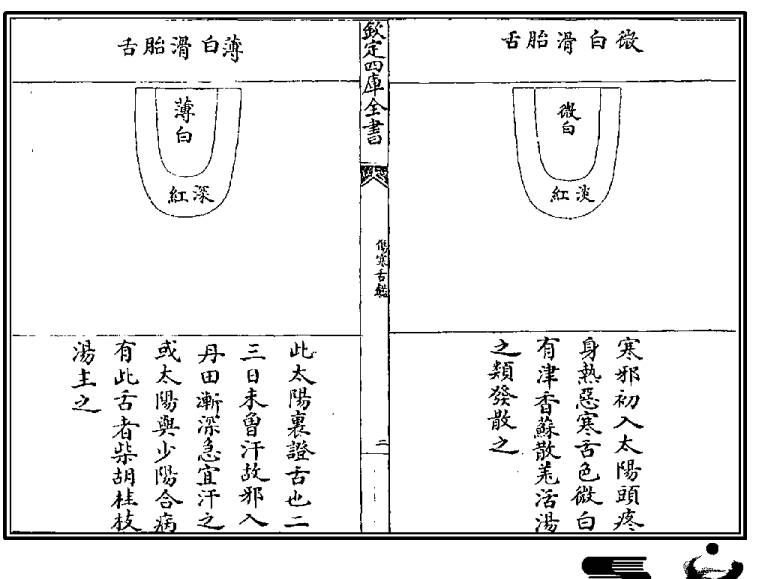 微白滑胎舌
微白
淡紅
寒邪初入太陽頭疼
身熱惡寒舌色微白
有津香蘇散羗活湯
之類發散之
欽定四庫全書
傷寒舌鑑
三
薄白滑胎舌
薄白
深紅
此太陽裏證舌也二
三日未曾汗故邪入
丹田漸深急宜汗之
或太陽與少陽合病
有此舌者柴胡桂枝
湯主之